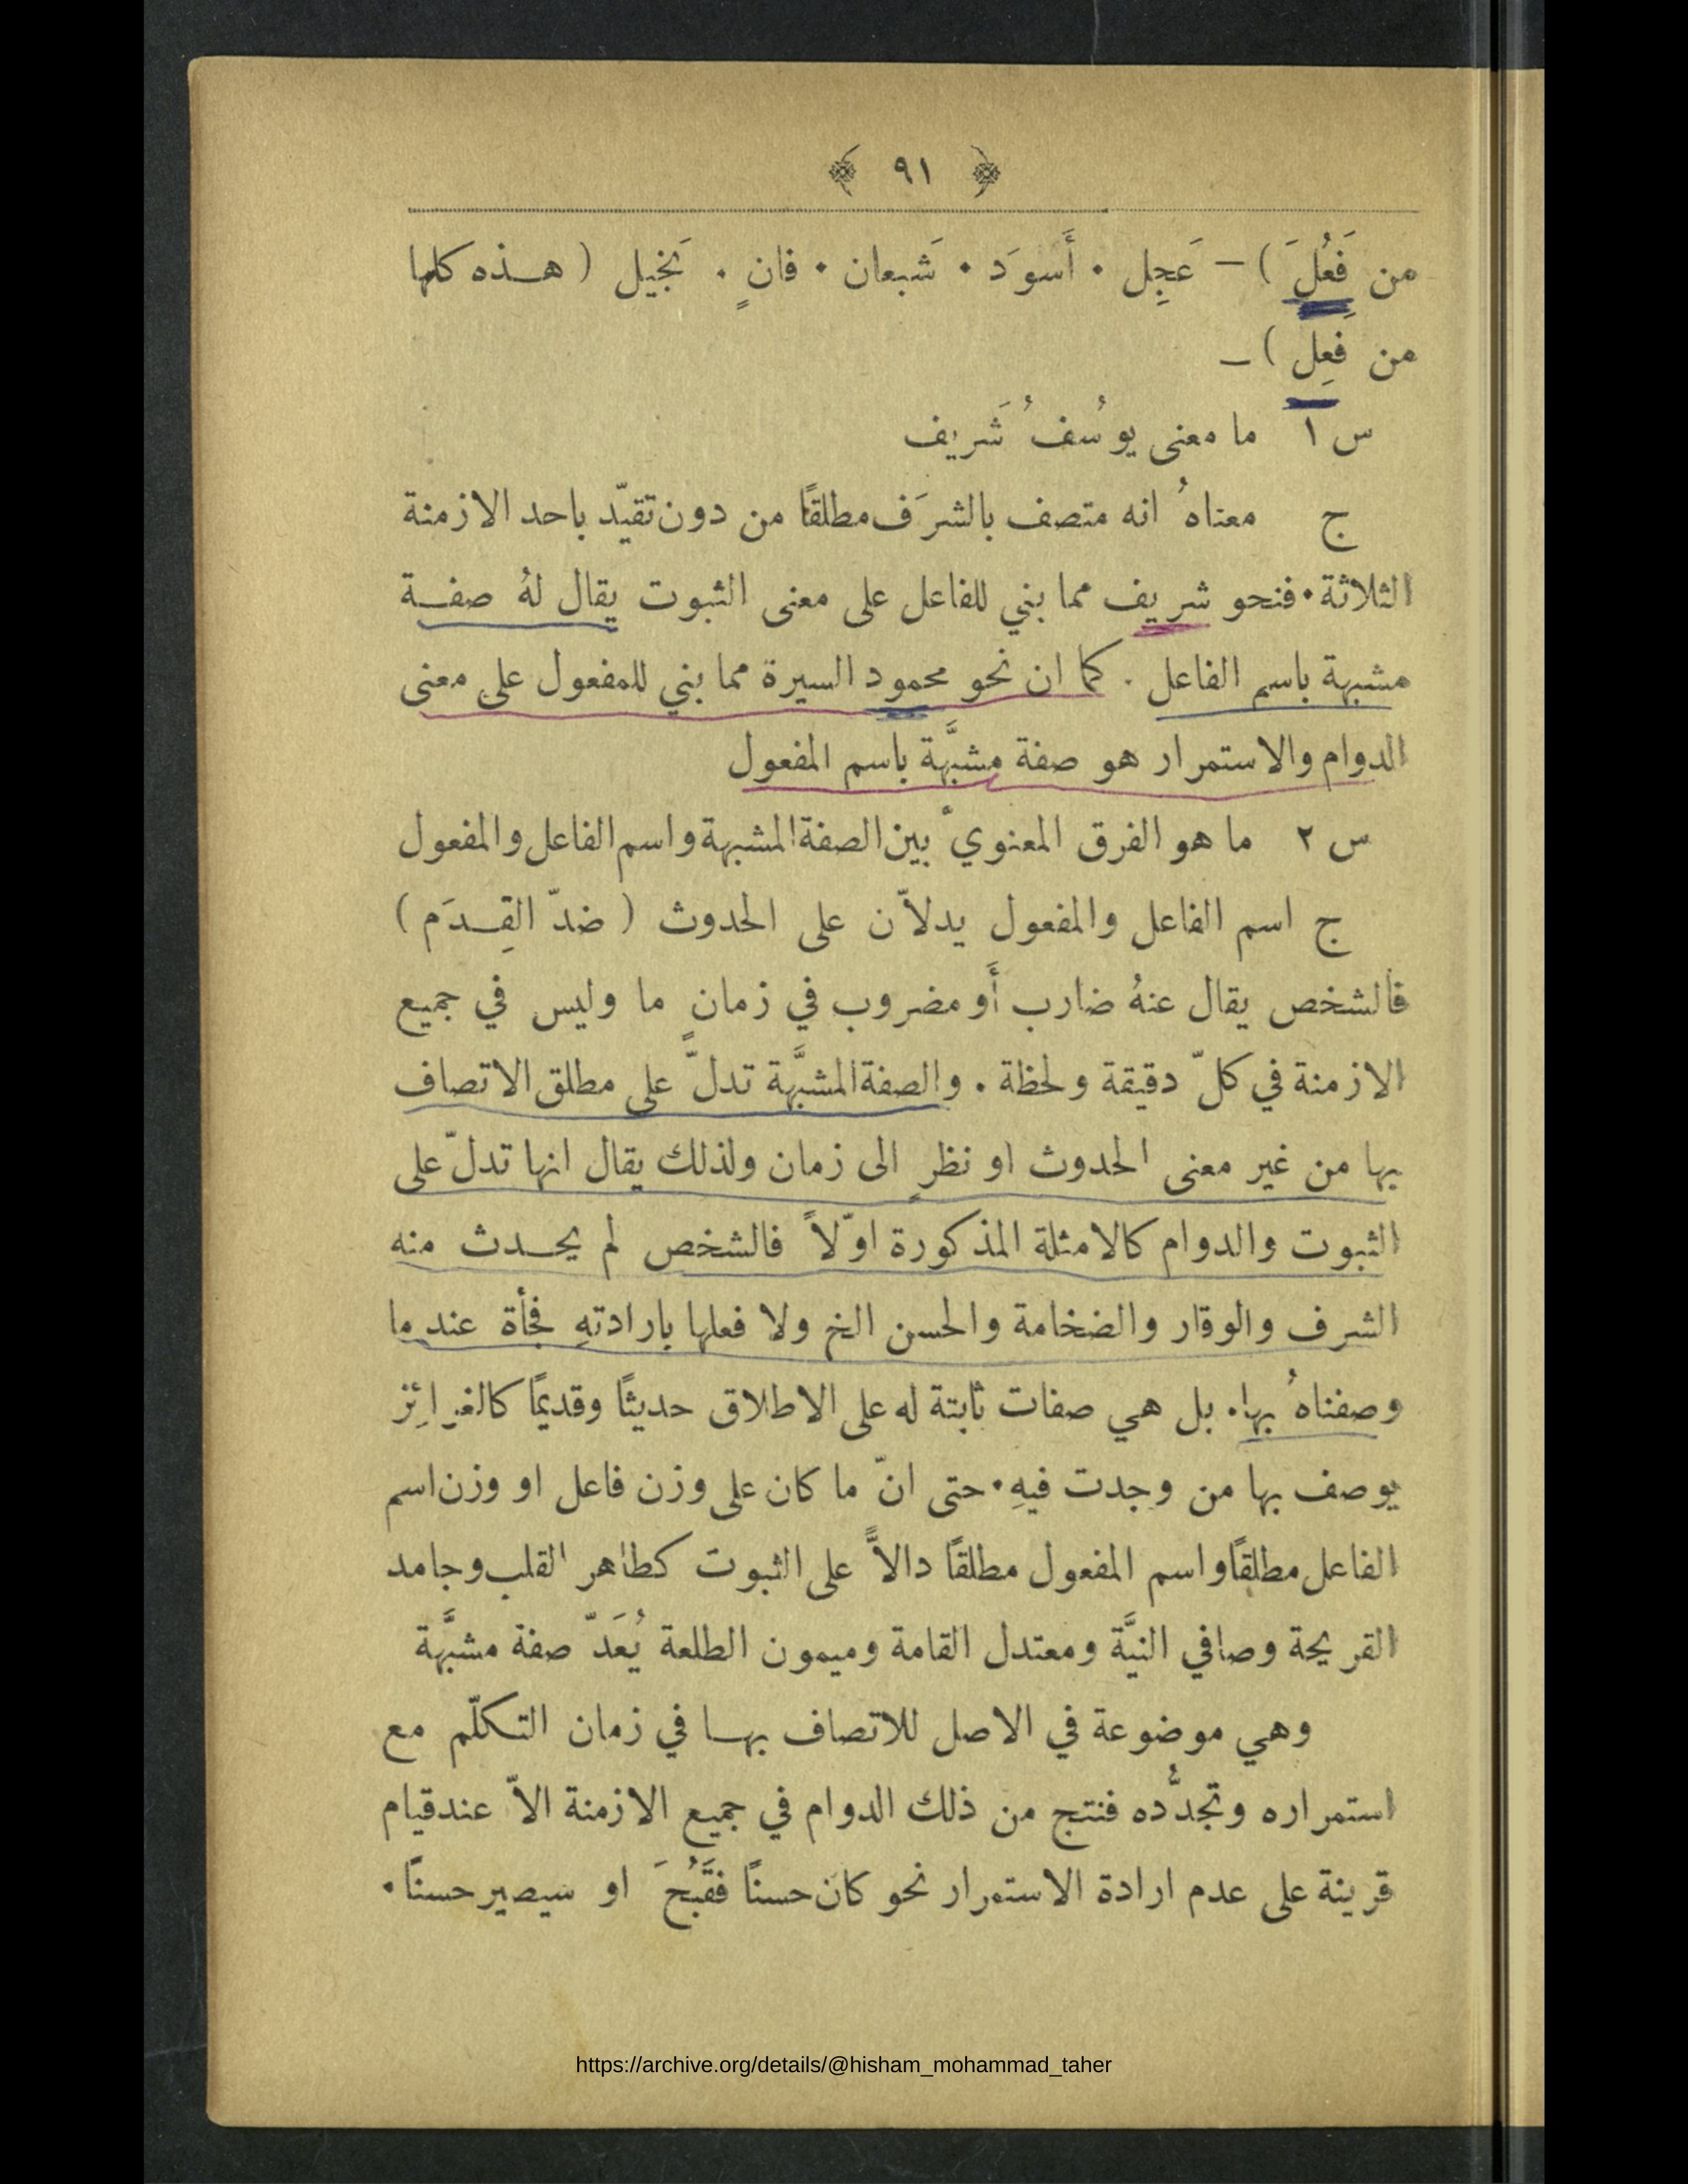 ﴿ ٩١ ﴾
من فَعُلَ ) – عَجِل . أَسوَد . شَبعان . فانٍ . بَخيل ( هـذه كلها
من فَعِلَ ) –
س ١ ما معنى يوسُفُ شَريف
ج معناهُ انه متصف بالشرَف مطلقًا من دون تقيّد باحد الازمنة
الثلاثة . فنحو شريف مما بني للفاعل على معنى الثبوت يقال لهُ صفـة
مشبهة باسم الفاعل . كما ان نحو محمود السيرة مما بني للمفعول على معنى
الدوام والاستمرار هو صفة مشبَّهة باسم المفعول
س ٢ ما هو الفرق المعنويّ بين الصفة المشبهة واسم الفاعل والمفعول
ج اسم الفاعل والمفعول يدلاّن على الحدوث ( ضدّ القِـدَم )
فالشخص يقال عنهُ ضارب أَو مضروب في زمانٍ ما وليس في جميع
الازمنة في كلّ دقيقة ولحظة . والصفة المشبَّهة تدلّ على مطلق الاتصاف
بها من غير معنى الحدوث او نظرٍ الى زمان ولذلك يقال انها تدلّ على
الثبوت والدوام كالامثلة المذكورة اوّلاً فالشخص لم يحـدث منه
الشرف والوقار والضخامة والحسن الخ ولا فعلها بارادتهِ فجأة عند ما
وصفناهُ بها . بل هي صفات ثابتة له على الاطلاق حديثًا وقديمًا كالغرائِز
يوصف بها من وجدت فيهِ . حتى انّ ما كان على وزن فاعل او وزن اسم
الفاعل مطلقًا واسم المفعول مطلقًا دالاًّ على الثبوت كطاهر القلب وجامد
القريحة وصافي النيَّة ومعتدل القامة وميمون الطلعة يُعَدّ صفة مشبَّهة
وهي موضوعة في الاصل للاتصاف بهـا في زمان التكلّم مع
استمراره وتجدُّده فنتج من ذلك الدوام في جميع الازمنة الاّ عند قيام
قرينة على عدم ارادة الاستمرار نحو كان حسنًا فقَبُحَ او سيصير حسنًا .
https://archive.org/details/@hisham_mohammad_taher